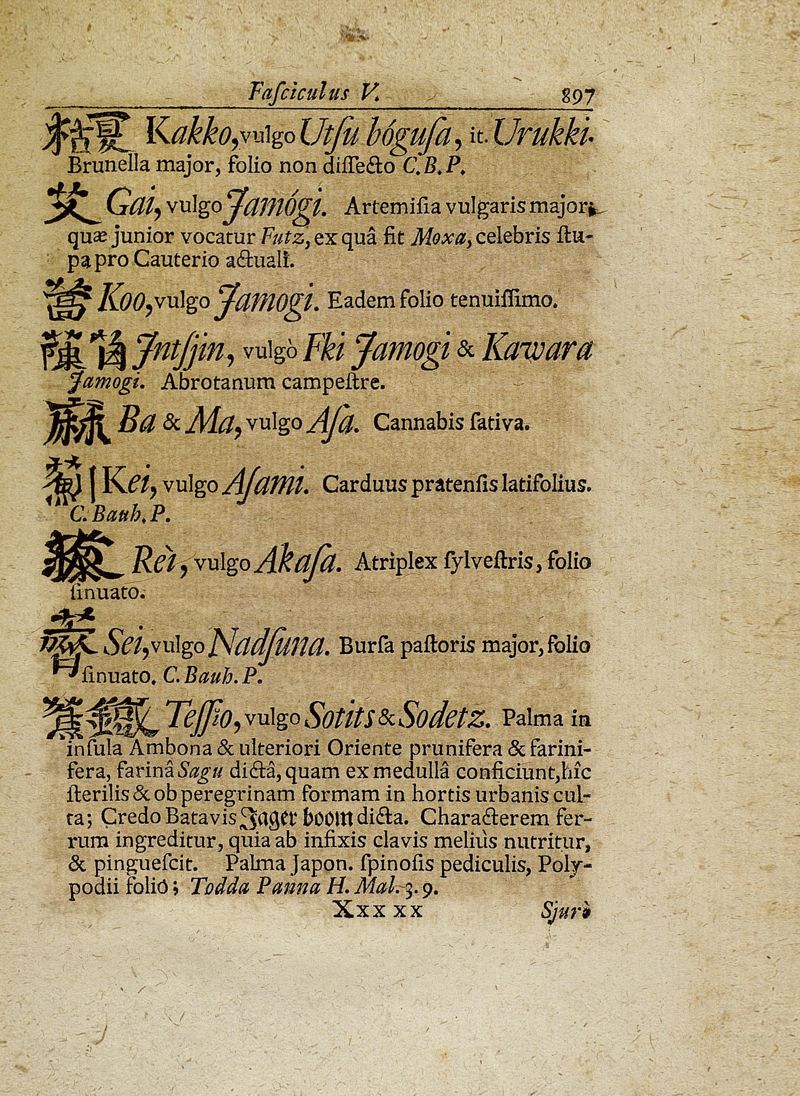 Faſciculus V. 897
枯夏 Kakko, vulgo Utſu bóguſa, it. Urukki.
Brunella major, folio non diſſecto C.B.P.
艾 Gai, vulgo Jamógi. Artemiſia vulgaris major;
quæ junior vocatur Futz, ex quâ fit Moxa, celebris ſtu-
pa pro Cauterio actuali.
蒿 Koo, vulgo Jamogi. Eadem folio tenuiſſimo.
Jntſjin, vulgò Fki Jamogi & Kawara
Jamogi. Abrotanum campeſtre.
麻 Ba & Ma, vulgo Aſa. Cannabis ſativa.
薊 Kei, vulgo Aſami. Carduus pratenſis latifolius.
C. Bauh. P.
藜 Rei, vulgo Akaſa. Atriplex ſylveſtris, folio
ſinuato.
薺 Sei, vulgo Nadſuna. Burſa paſtoris major, folio
ſinuato. C. Bauh. P.
蕉鐵 Teſſio, vulgo Sotits & Sodetz. Palma in
inſula Ambona & ulteriori Oriente prunifera & farini-
fera, farinâ Sagu dictâ, quam ex medullâ conficiunt, hîc
ſterilis & ob peregrinam formam in hortis urbanis cul-
ta; Credo Batavis Jager boom dicta. Characterem fer-
rum ingreditur, quia ab infixis clavis meliùs nutritur,
& pingueſcit. Palma Japon. ſpinoſis pediculis, Poly-
podii folio; Todda Panna H. Mal. 3. 9.
Xxx xx Sjurò